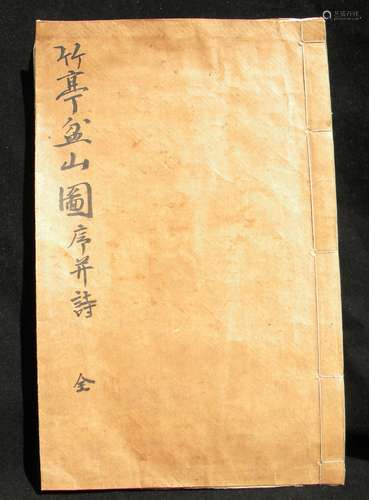 竹亭盆山圖序并詩 全